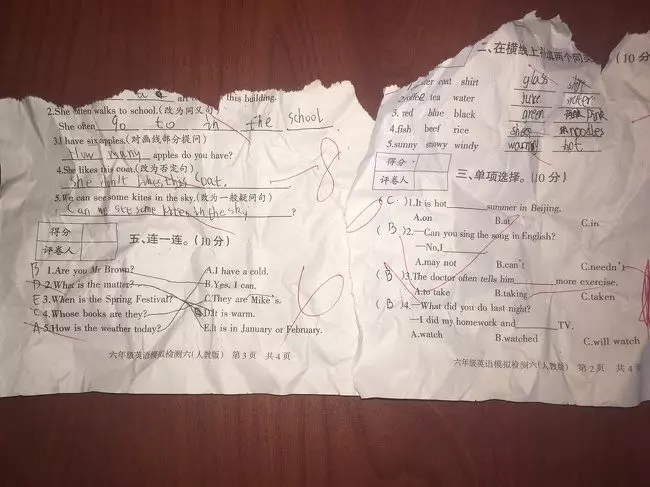 this building.
2.She often walks to school.(改为同义句)
She often go to in the school
3.I have six apples.(对画线部分提问)
How many apples do you have?
4.She likes this coat.(改为否定句)
She don't likes this coat.
5.We can see some kites in the sky.(改为一般疑问句)
Can we see some kites in the sky ?
8
得分
评卷人
五、连一连。(10分)
B 1.Are you Mr Brown? A.I have a cold.
D 2.What is the matter? B.Yes, I can.
E 3.When is the Spring Festival? C.They are Mike's.
C 4.Whose books are they? D.It is warm.
A 5.How is the weather today? E.It is in January or February.
6
六年级英语模拟检测六(人教版) 第3页 共4页
二、在横线上 填两个同类 (10分
coat shirt glass
2.coffee tea water juice water
3. red blue black green pink
4.fish beef rice noodles
5.sunny snowy windy warm hot
得分
评卷人
三、单项选择。(10分)
( C )1.It is hot summer in Beijing.
A.on B.at C.in
( B )2.—Can you sing the song in English?
—No,I .
A.may not B.can't C.needn't
( B )3.The doctor often tells him more exercise.
A.to take B.taking C.taken
( B )4.—What did you do last night?
—I did my homework and TV.
A.watch B.watched C.will watch
六年级英语模拟检测六(人教版) 第2页 共4